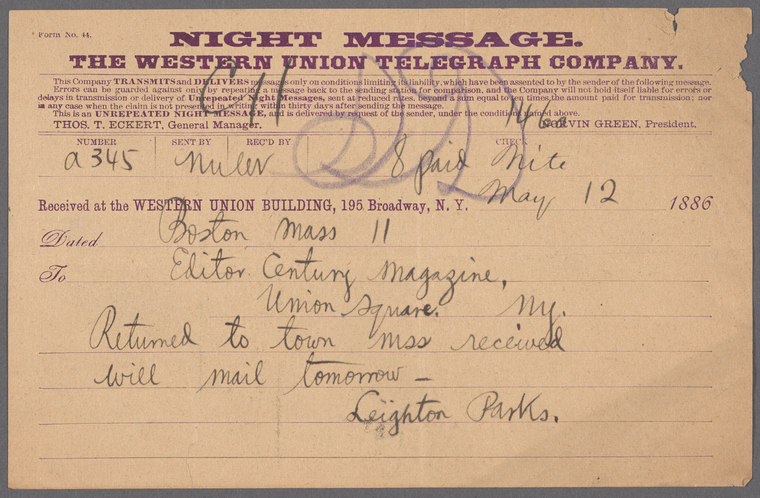 Form No. 44.
NIGHT MESSAGE.
THE WESTERN UNION TELEGRAPH COMPANY.
This Company TRANSMITS and DELIVERS messages only on conditions limiting its liability, which have been assented to by the sender of the following message.
Errors can be guarded against only by repeating a message back to the sending station for comparison, and the Company will not hold itself liable for errors or
delays in transmission or delivery of Unrepeated Night Messages, sent at reduced rates, beyond a sum equal to ten times the amount paid for transmission; nor
in any case when the claim is not presented in writing within thirty days after sending the message.
This is an UNREPEATED NIGHT MESSAGE, and is delivered by request of the sender, under the conditions named above.
THOS. T. ECKERT, General Manager. NORVIN GREEN, President.
NUMBER SENT BY REC'D BY CHECK
a345 8 paid Nite
May 12 1886
Received at the WESTERN UNION BUILDING, 195 Broadway, N. Y.
Dated Boston Mass 11
To Editor Century Magazine,
Union Square. Ny.
Returned to town mss received
will mail tomorrow —
Leighton Parks.